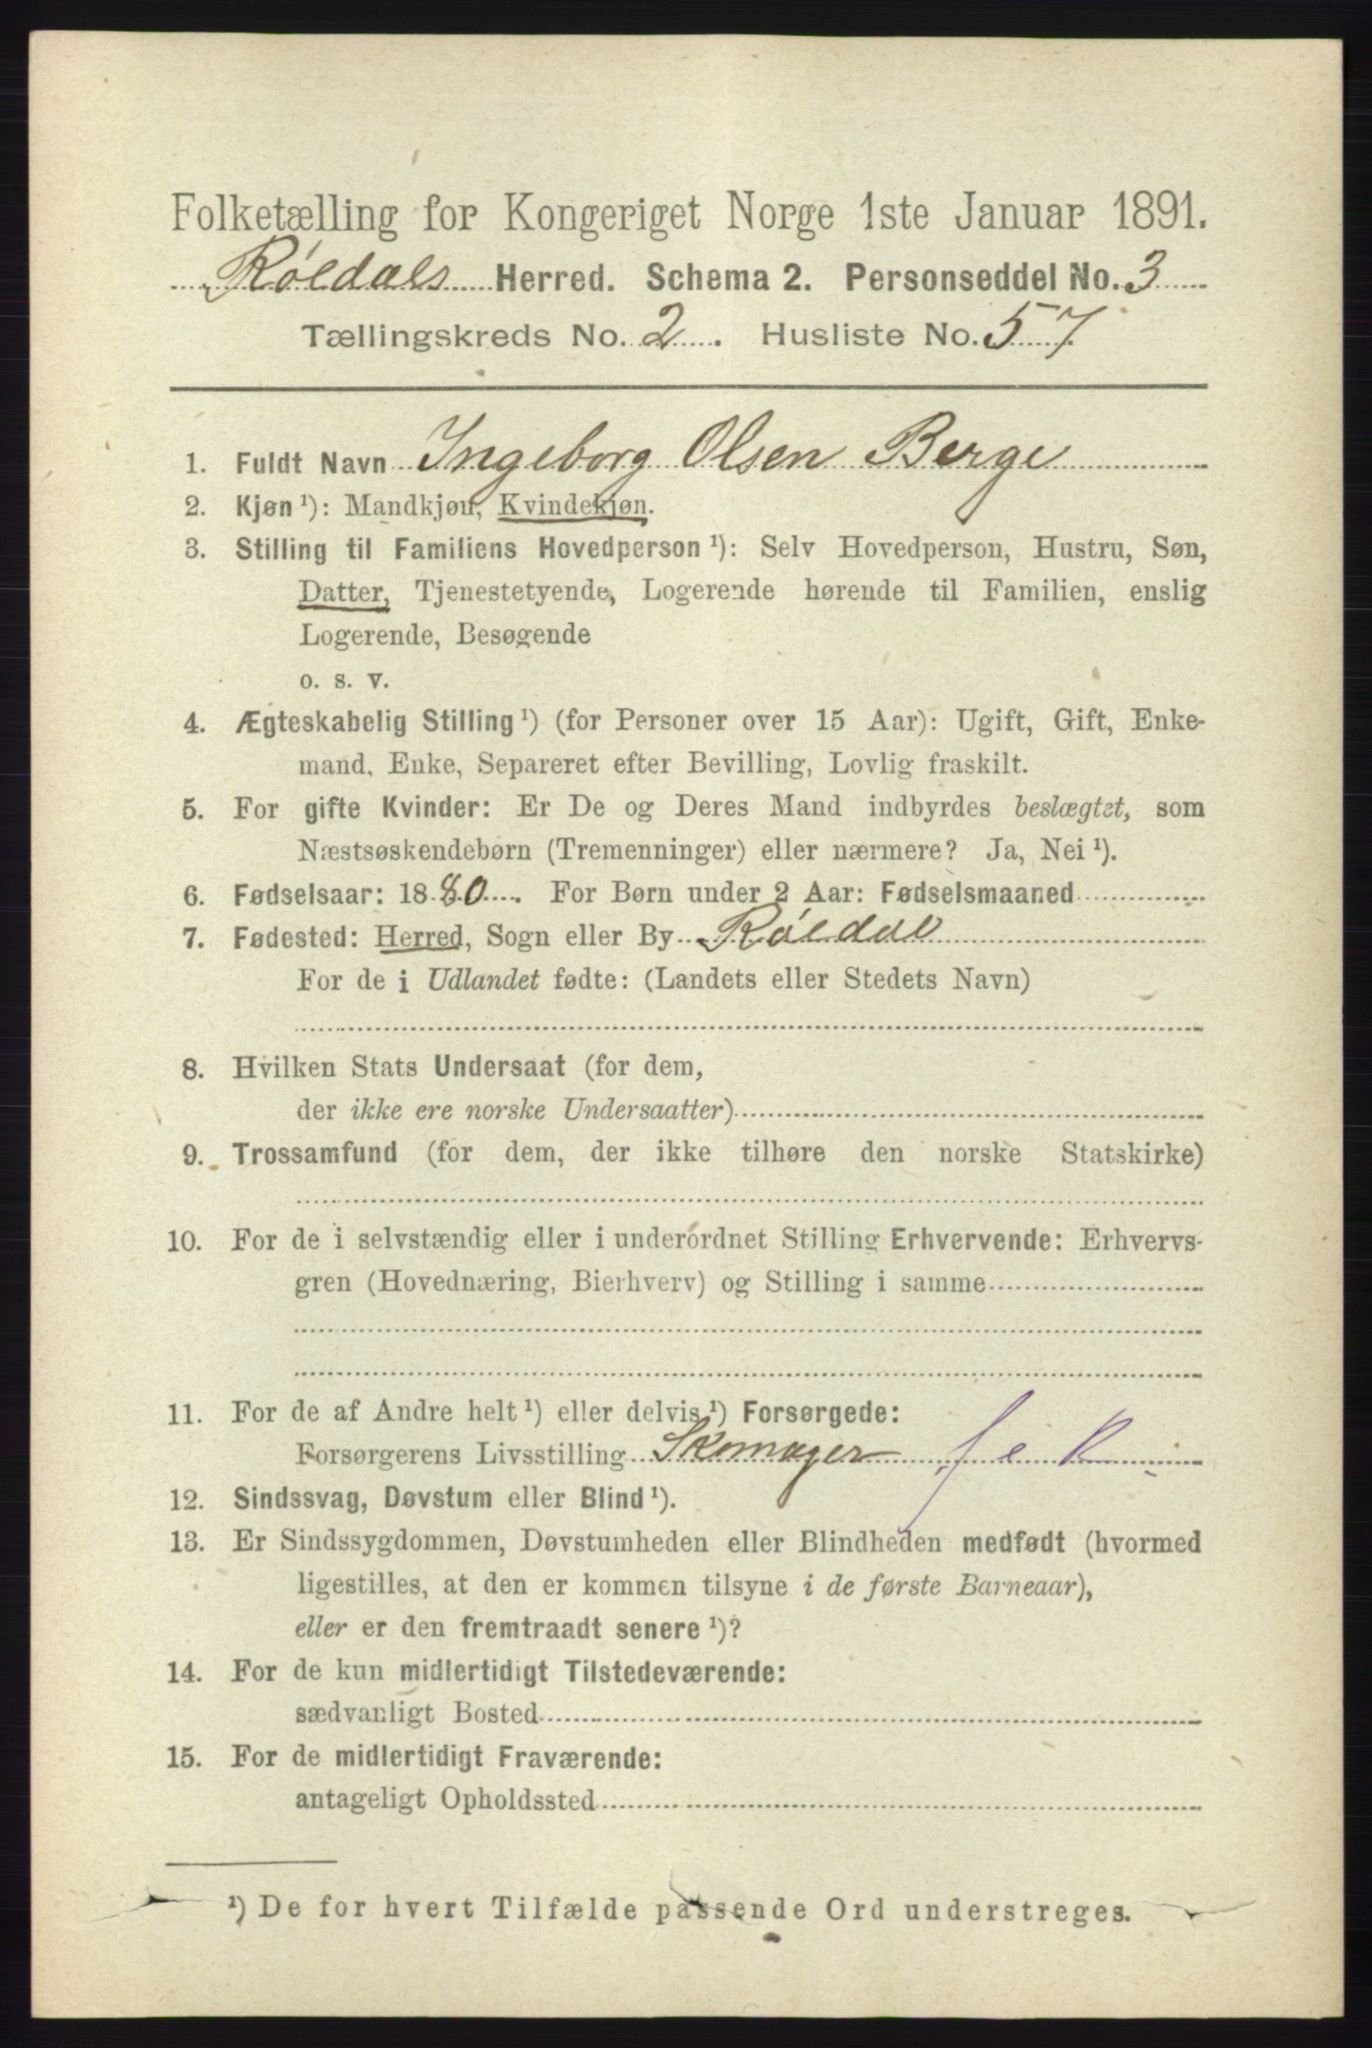 Folketælling for Kongeriget Norge 1ste Januar 1891.
Røldals Herred. Schema 2. Personseddel No. 3
Tællingskreds No. 2. Husliste No. 57
1. Fuldt Navn Ingeborg Olsen Berge
2. Kjøn ¹): Mandkjøn, Kvindekjøn.
3. Stilling til Familiens Hovedperson ¹): Selv Hovedperson, Hustru, Søn,
Datter, Tjenestetyende, Logerende hørende til Familien, enslig
Logerende, Besøgende
o. s. v.
4. Ægteskabelig Stilling ¹) (for Personer over 15 Aar): Ugift, Gift, Enke-
mand, Enke, Separeret efter Bevilling, Lovlig fraskilt.
5. For gifte Kvinder: Er De og Deres Mand indbyrdes beslægtet, som
Næstsøskendebørn (Tremenninger) eller nærmere? Ja, Nei ¹).
6. Fødselsaar: 1880. For Børn under 2 Aar: Fødselsmaaned
7. Fødested: Herred, Sogn eller By Røldal
For de i Udlandet fødte: (Landets eller Stedets Navn)
8. Hvilken Stats Undersaat (for dem,
der ikke ere norske Undersaatter)
9. Trossamfund (for dem, der ikke tilhøre den norske Statskirke)
10. For de i selvstændig eller i underordnet Stilling Erhvervende: Erhvervs-
gren (Hovednæring, Bierhverv) og Stilling i samme
11. For de af Andre helt ¹) eller delvis ¹) Forsørgede:
Forsørgerens Livsstilling Skomager f e k
12. Sindssvag, Døvstum eller Blind ¹).
13. Er Sindssygdommen, Døvstumheden eller Blindheden medfødt (hvormed
ligestilles, at den er kommen tilsyne i de første Barneaar),
eller er den fremtraadt senere ¹)?
14. For de kun midlertidigt Tilstedeværende:
sædvanligt Bosted
15. For de midlertidigt Fraværende:
antageligt Opholdssted
¹) De for hvert Tilfælde passende Ord understreges.